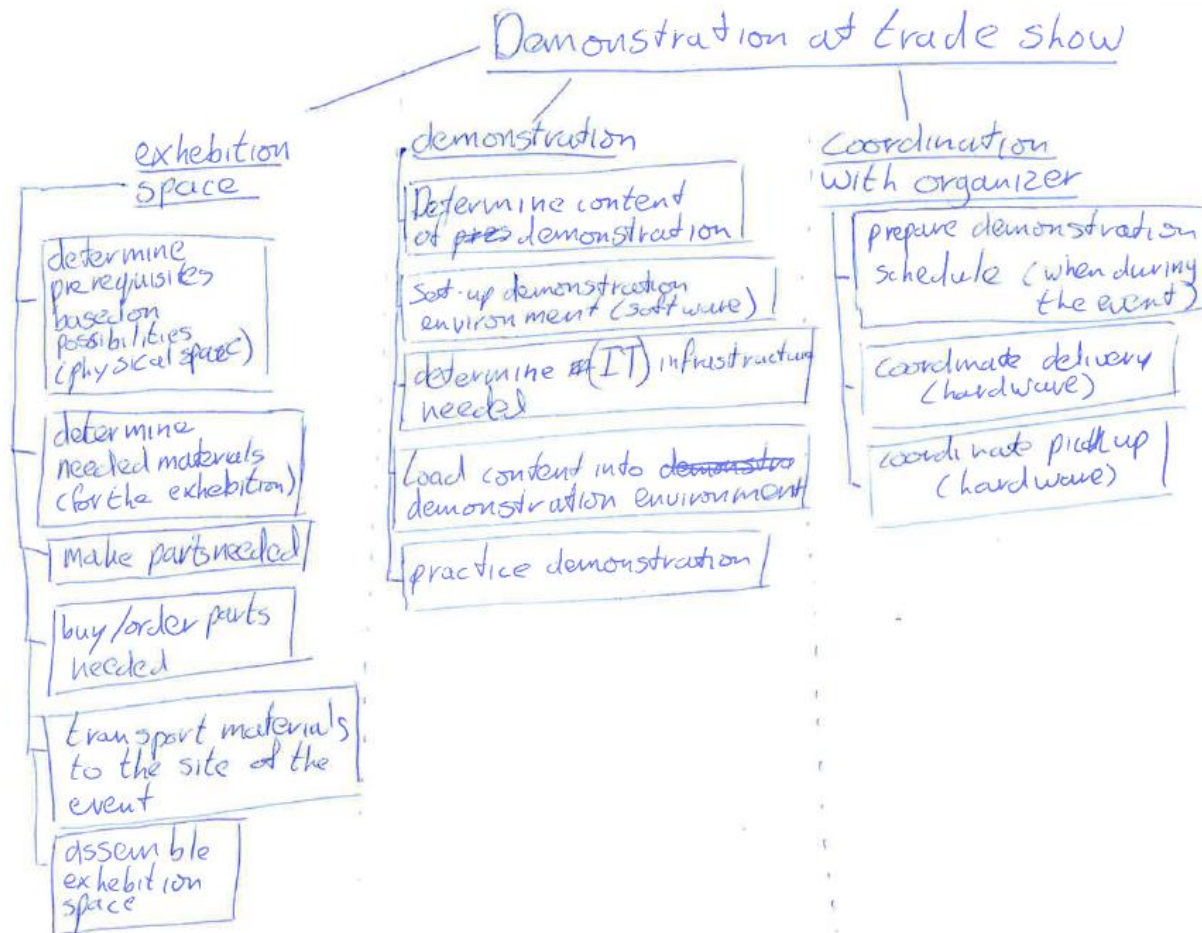 Demonstration at trade show
exhebition
space
determine
prerequisites
based on
possibilities
(physical space)
determine
needed materials
(for the exhebition)
make parts needed
buy/order parts
needed
transport materials
to the site of the
event
assemble
exhebition
space
demonstration
Determine content
of pres demonstration
Set-up demonstration
environment (software)
determine (IT) infrastructure
needed
Load content into demonstra
demonstration environment
practice demonstration
Coordination
with organizer
prepare demonstration
schedule (when during
the event)
coordinate delivery
(hardware)
coordinate pickup
(hardware)